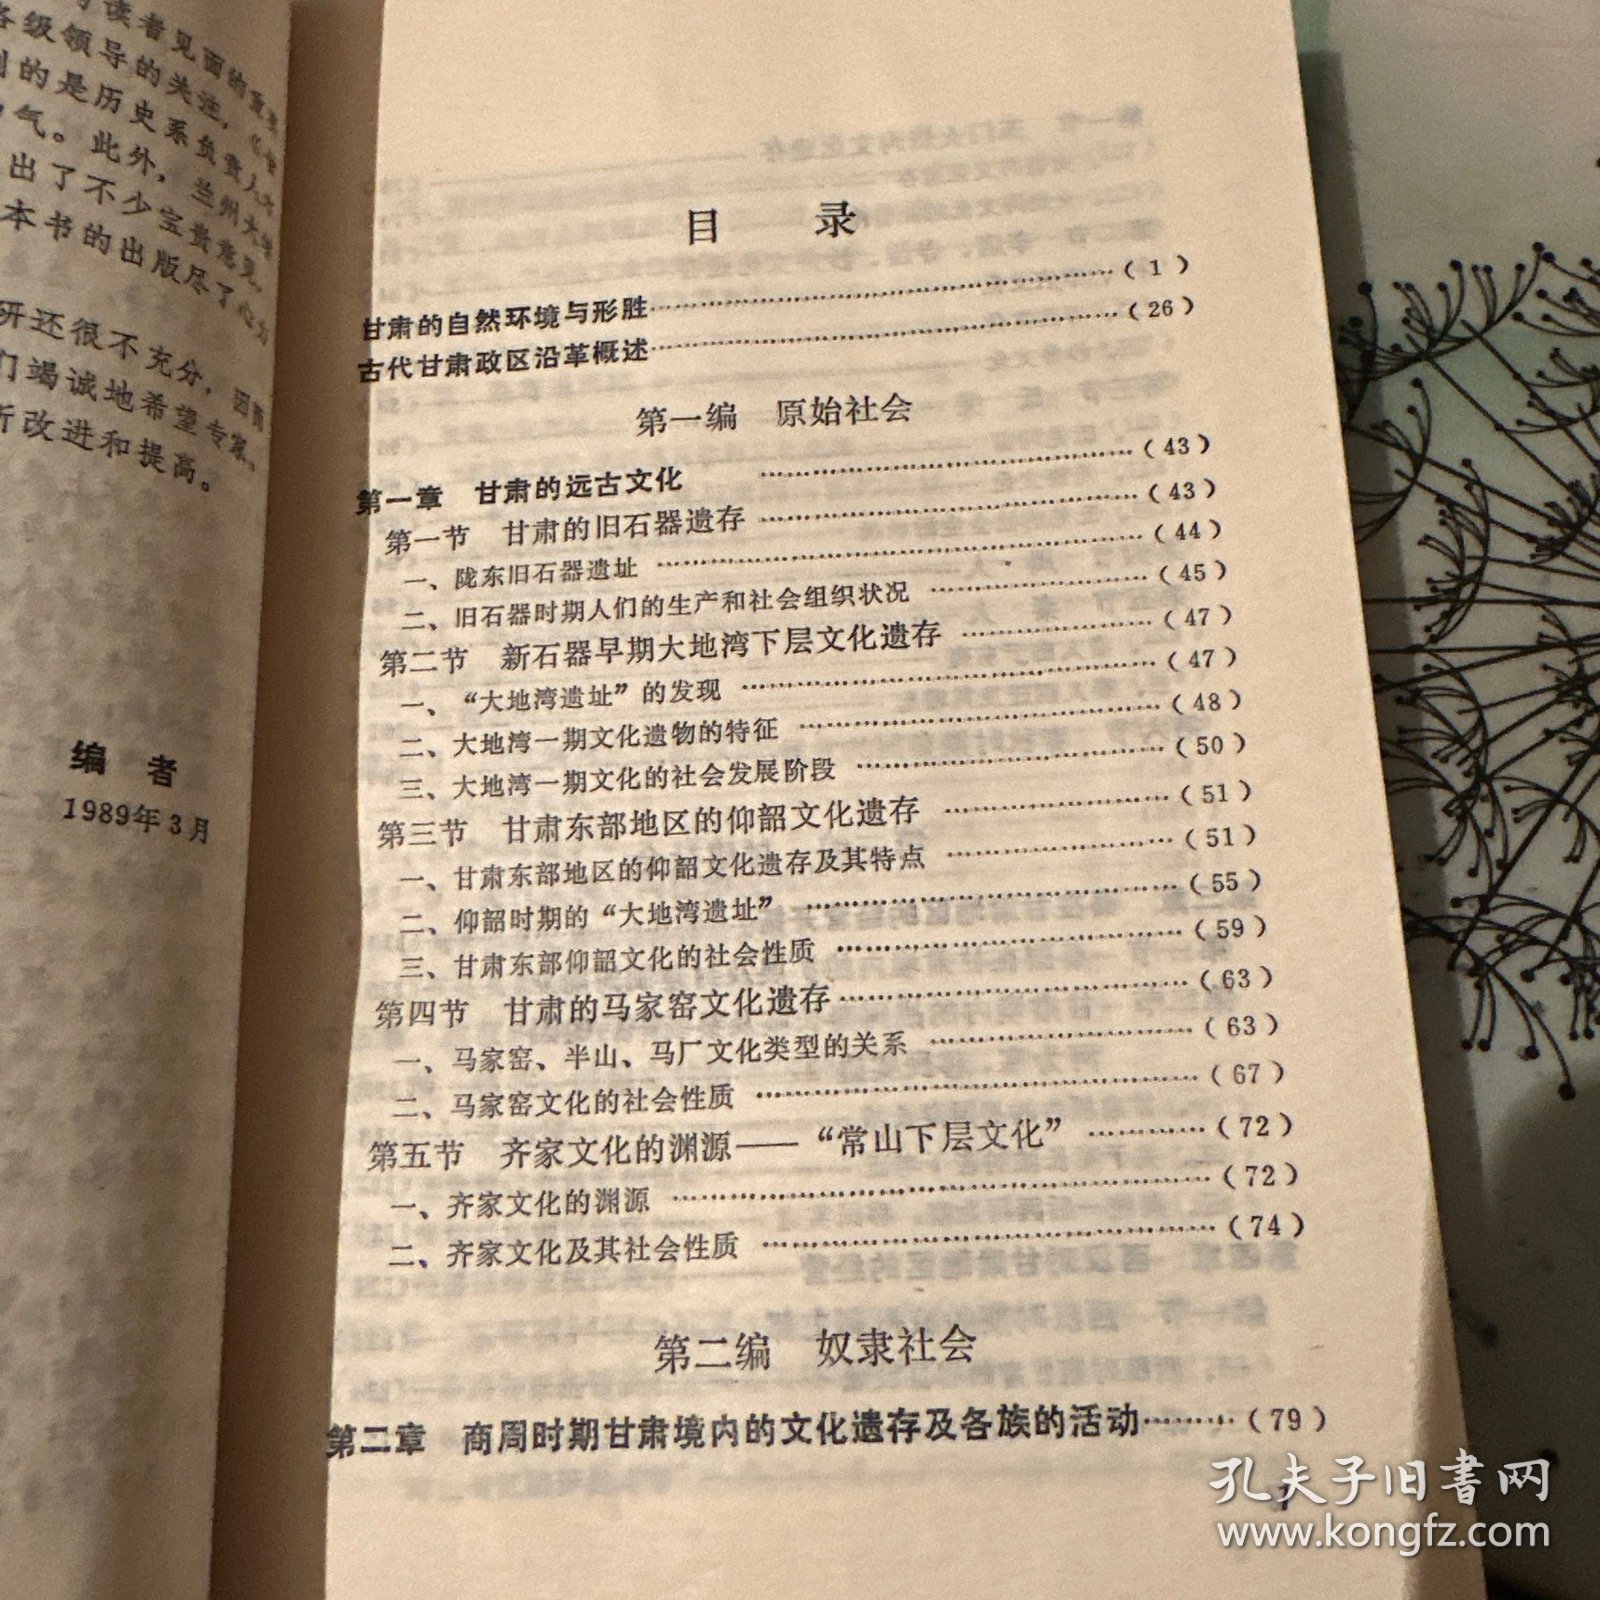 读者见面的
各级领导的关注，
的是历史系负责人
气。此外，兰州大学
出了不少宝贵意见。
本书的出版尽了心力
研还很不充分，因而
们竭诚地希望专家、
所改进和提高。
编 者
1989年3月
目 录
甘肃的自然环境与形胜……………………（1）
古代甘肃政区沿革概述……………………（26）
第一编 原始社会
第一章 甘肃的远古文化……………………（43）
第一节 甘肃的旧石器遗存……………………（43）
一、陇东旧石器遗址……………………（44）
二、旧石器时期人们的生产和社会组织状况……………（45）
第二节 新石器早期大地湾下层文化遗存……………（47）
一、“大地湾遗址”的发现……………………（47）
二、大地湾一期文化遗物的特征……………………（48）
三、大地湾一期文化的社会发展阶段………………（50）
第三节 甘肃东部地区的仰韶文化遗存……………（51）
一、甘肃东部地区的仰韶文化遗存及其特点……………（51）
二、仰韶时期的“大地湾遗址”……………………（55）
三、甘肃东部仰韶文化的社会性质…………………（59）
第四节 甘肃的马家窑文化遗存……………………（63）
一、马家窑、半山、马厂文化类型的关系……………（63）
二、马家窑文化的社会性质……………………（67）
第五节 齐家文化的渊源——“常山下层文化”…………（72）
一、齐家文化的渊源……………………（72）
二、齐家文化及其社会性质……………………（74）
第二编 奴隶社会
第二章 商周时期甘肃境内的文化遗存及各族的活动………（79）
1
孔夫子旧书网
www.kongfz.com